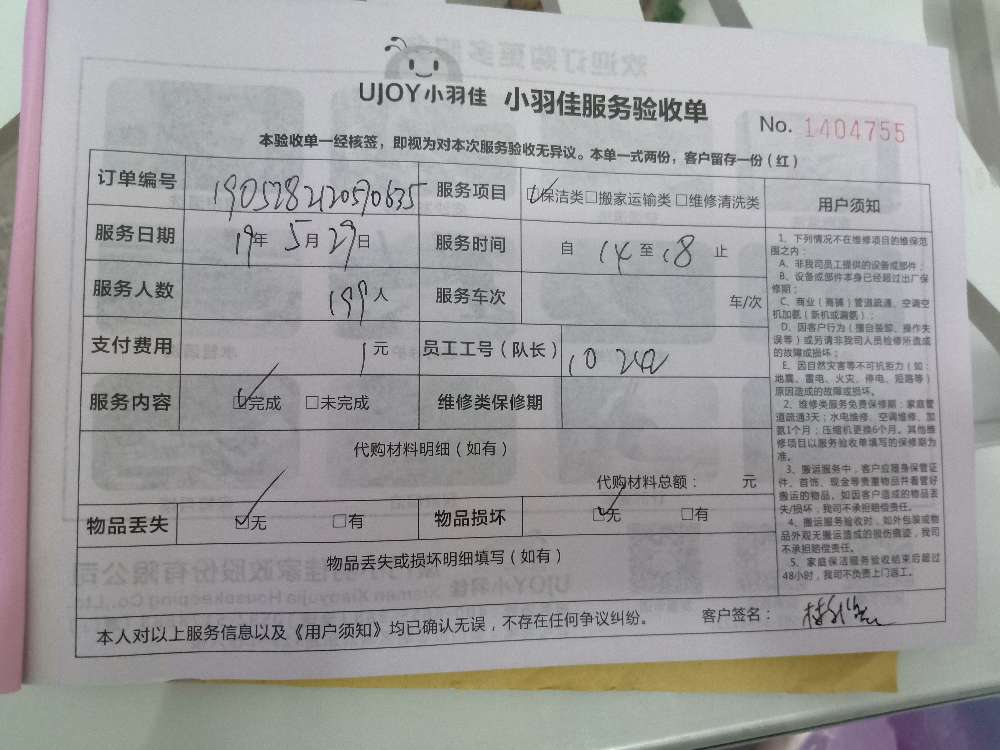 UJOY小羽佳 小羽佳服务验收单
No. 1404755
本验收单一经核签，即视为对本次服务验收无异议。本单一式两份，客户留存一份（红）
订单编号 190528212050635 服务项目 ☑保洁类□搬家运输类□维修清洗类
服务日期 19年5月29日 服务时间 自 14 至 18 止
服务人数 199人 服务车次 车/次
支付费用 1元 员工工号（队长）
服务内容 ☑完成 □未完成 维修类保修期
代购材料明细（如有）
代购材料总额： 元
物品丢失 ☑无 □有 物品损坏 ☑无 □有
物品丢失或损坏明细填写（如有）
本人对以上服务信息以及《用户须知》均已确认无误，不存在任何争议纠纷。 客户签名：
用户须知
1、下列情况不在维修项目的维保范
围之内：
A、非我司员工提供的设备或部件；
B、设备或部件本身已经超过出厂保
修期；
C、商业（商铺）管道疏通、空调空
机加氨（新机或漏氨）；
D、因客户行为（擅自装卸、操作失
误等）或另请非我司人员检修所造成
的故障或损坏；
E、因自然灾害等不可抗拒力（如：
地震、雷电、火灾、停电、短路等）
原因造成的故障或损坏。
2、维修类服务免费保修期：家庭管
道疏通3天；水电维修、空调维修、加
氨1个月；压缩机更换6个月。其他维
修项目以服务验收单填写的保修期为
准。
3、搬运服务中，客户应随身保管证
件、首饰、现金等贵重物品并看管好
搬运的物品。如因客户造成的物品丢
失/损坏，我司不承担赔偿责任。
4、搬运服务验收时，如外包装或物
品外观无搬运造成的损伤痕迹，我司
不承担赔偿责任。
5、家庭保洁服务验收结束后超过
48小时，我司不负责上门返工。